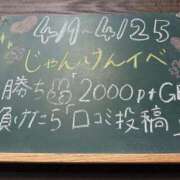 4/19~4/25
じゃんけんイベ
勝ち 2000pt G
負けたら「口コミ投稿